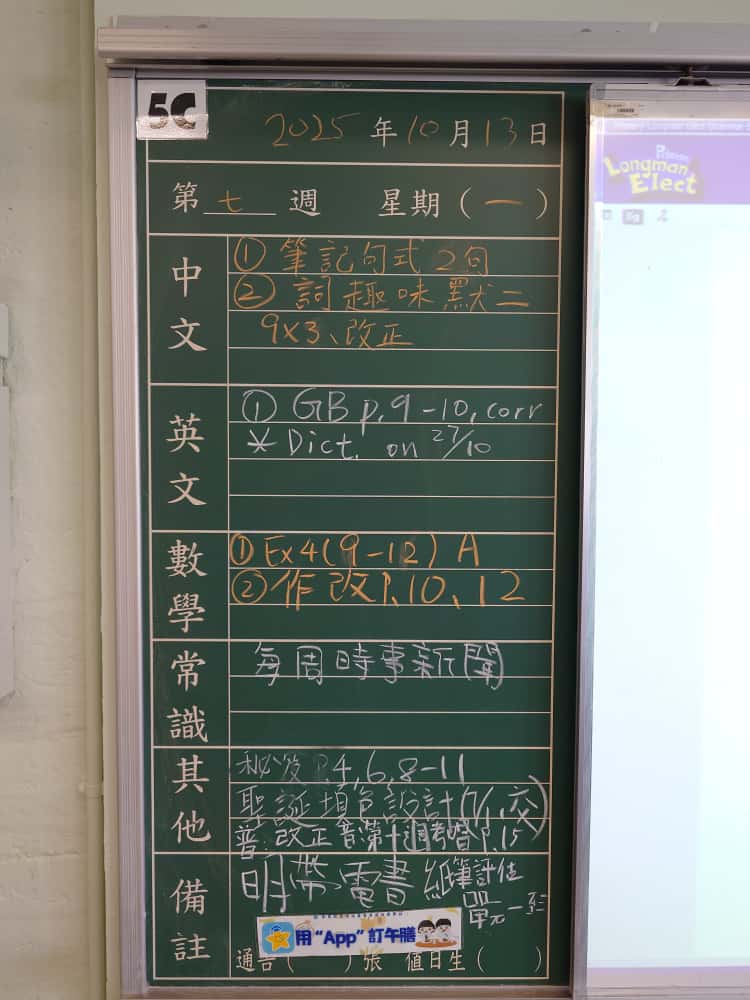 5C
2025年10月13日
第七週 星期(一)
中文
①筆記句式2句
②詞趣味默二
9x3、改正
英文
① GB p.9-10, corr
* Dict. on 27/10
數學
①Ex4(9-12) A
②作改P.10、12
常識
每周時事新聞
其他
P.4,6,8-11
聖誕填色設計
普:改正
P.15
備註
明帶電書 紙筆評估
單元一至
用“App”訂午膳
通告( )張 值日生( )
Longman
Elect